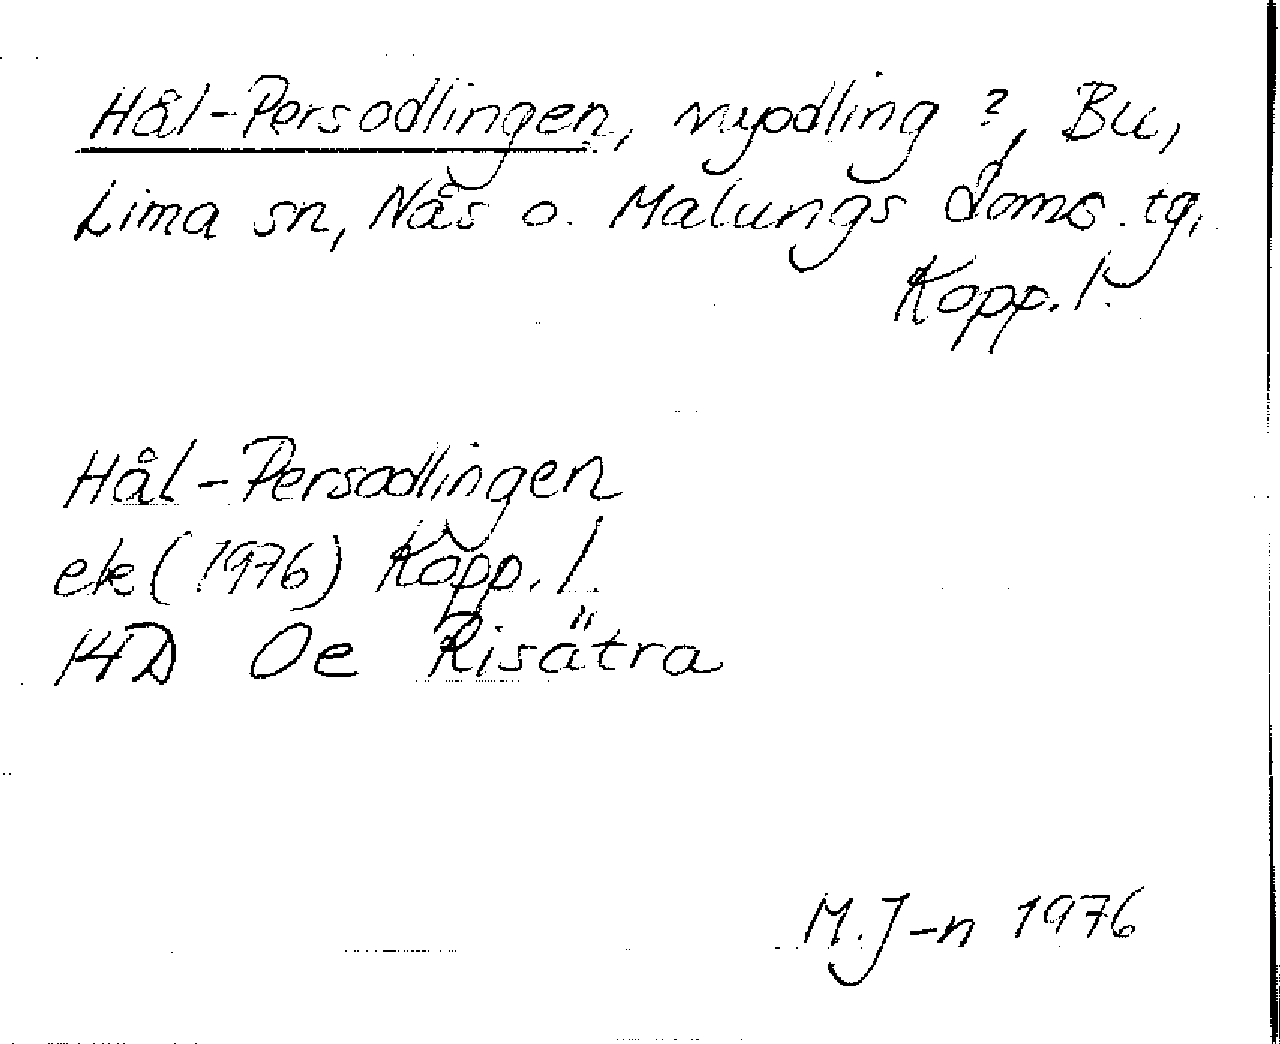 Hål-Persodlingen, nyodling ?, Bu,
Lima sn, Nås o. Malungs doms.tg,
Kopp. l.
Hål-Persodlingen
ek (1976) Kopp. l.
14D Oe Risätra
M.J-n 1976